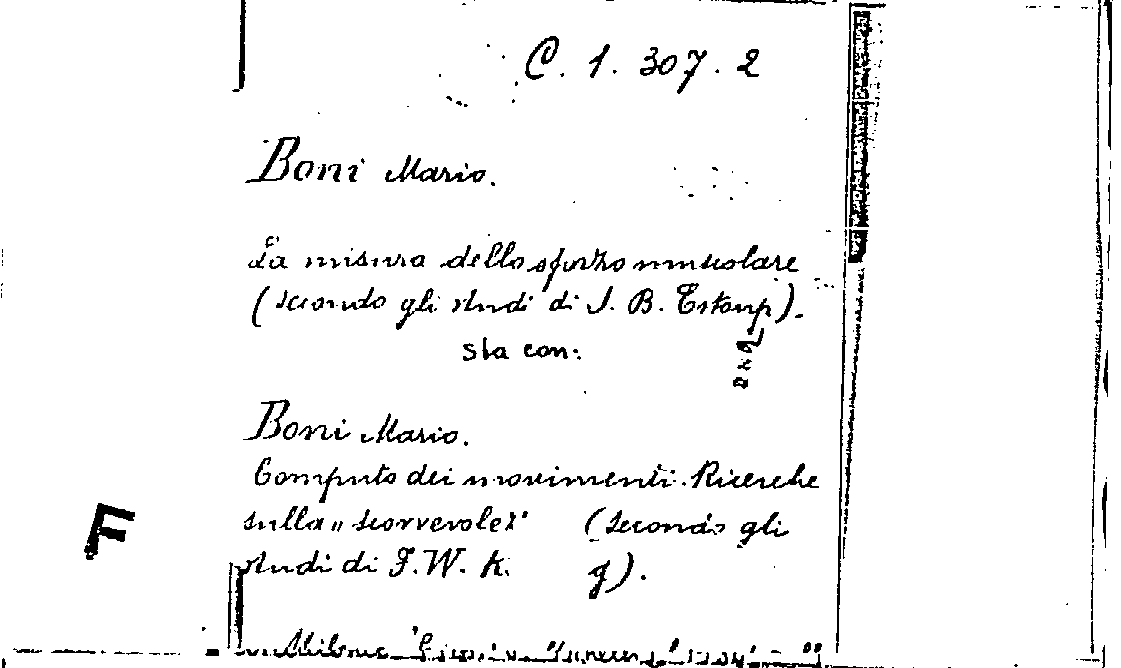 C. 1. 307. 2
Boni Mario.
La misura dello sforzo muscolare
(secondo gli studi di J. B. Estoup).
sta con:
Boni Mario.
Computo dei movimenti. Ricerche
sulla "scorrevolez" (secondo gli
studi di F. W. K. g).
F
Milano